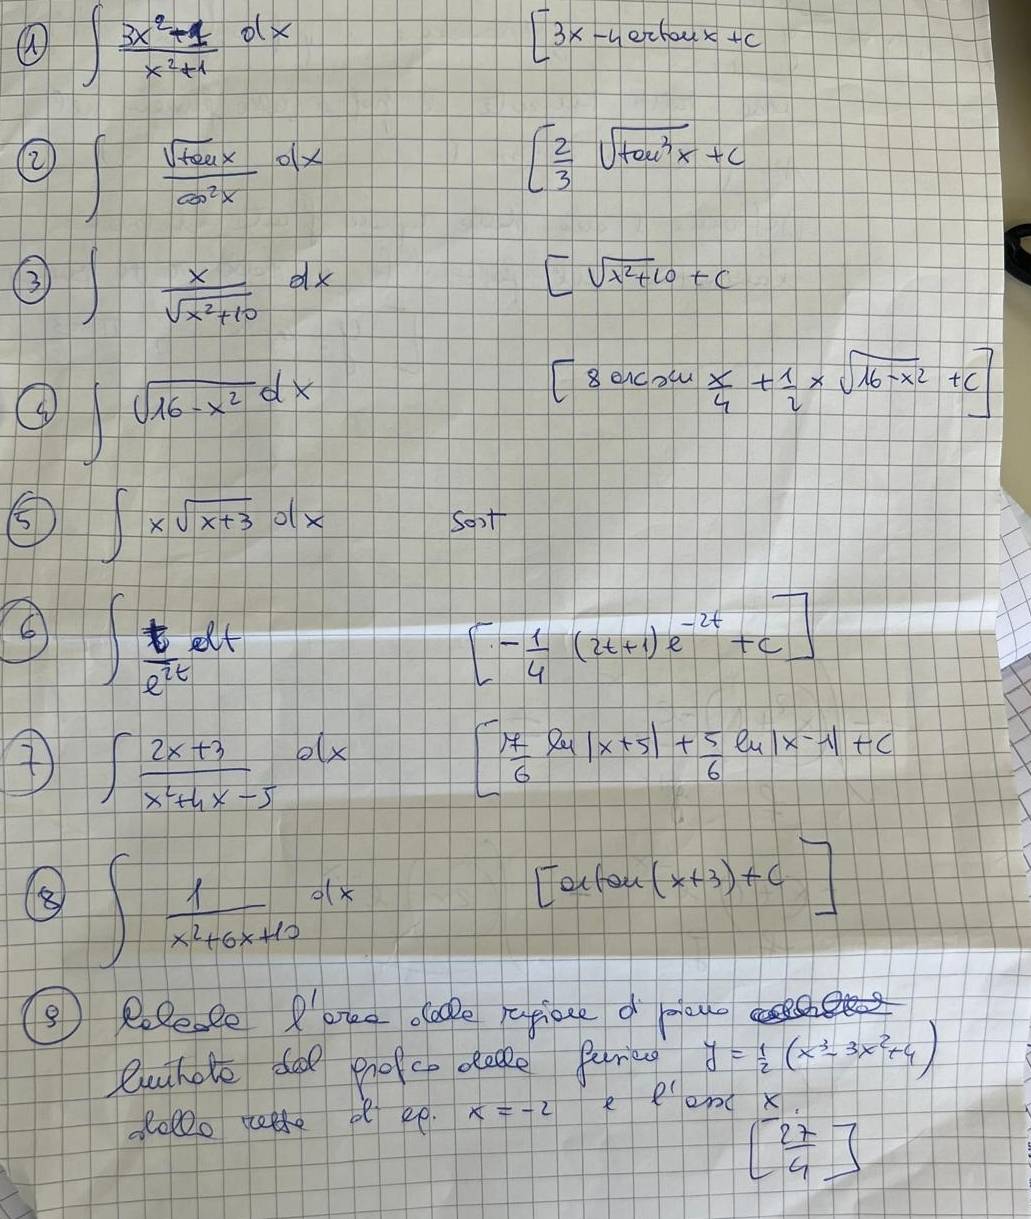 ① ∫ (3x²+1)/(x²+1) dx [3x - 4 arctan x + c
② ∫ √tan x / cos²x dx [2/3 √tan³x + c
③ ∫ x/√(x²+10) dx [√x²+10 + c
④ ∫ √16-x² dx [8 arcsen x/4 + 1/2 x √16-x² + c]
⑤ ∫ x √x+3 dx sost
⑥ ∫ t/e^2t dt [-1/4 (2t+1) e^-2t + c]
⑦ ∫ (2x+3)/(x²+4x-5) dx [7/6 ln|x+5| + 5/6 ln|x-1| + c
⑧ ∫ 1/(x²+6x+10) dx [arctan(x+3) + c]
⑨ Calcola l'area della regione di piano
limitata dal grafico della funzione y = 1/2 (x³-3x²+4)
dalla retta di eq. x = -2 e l'asse x.
[27/4]